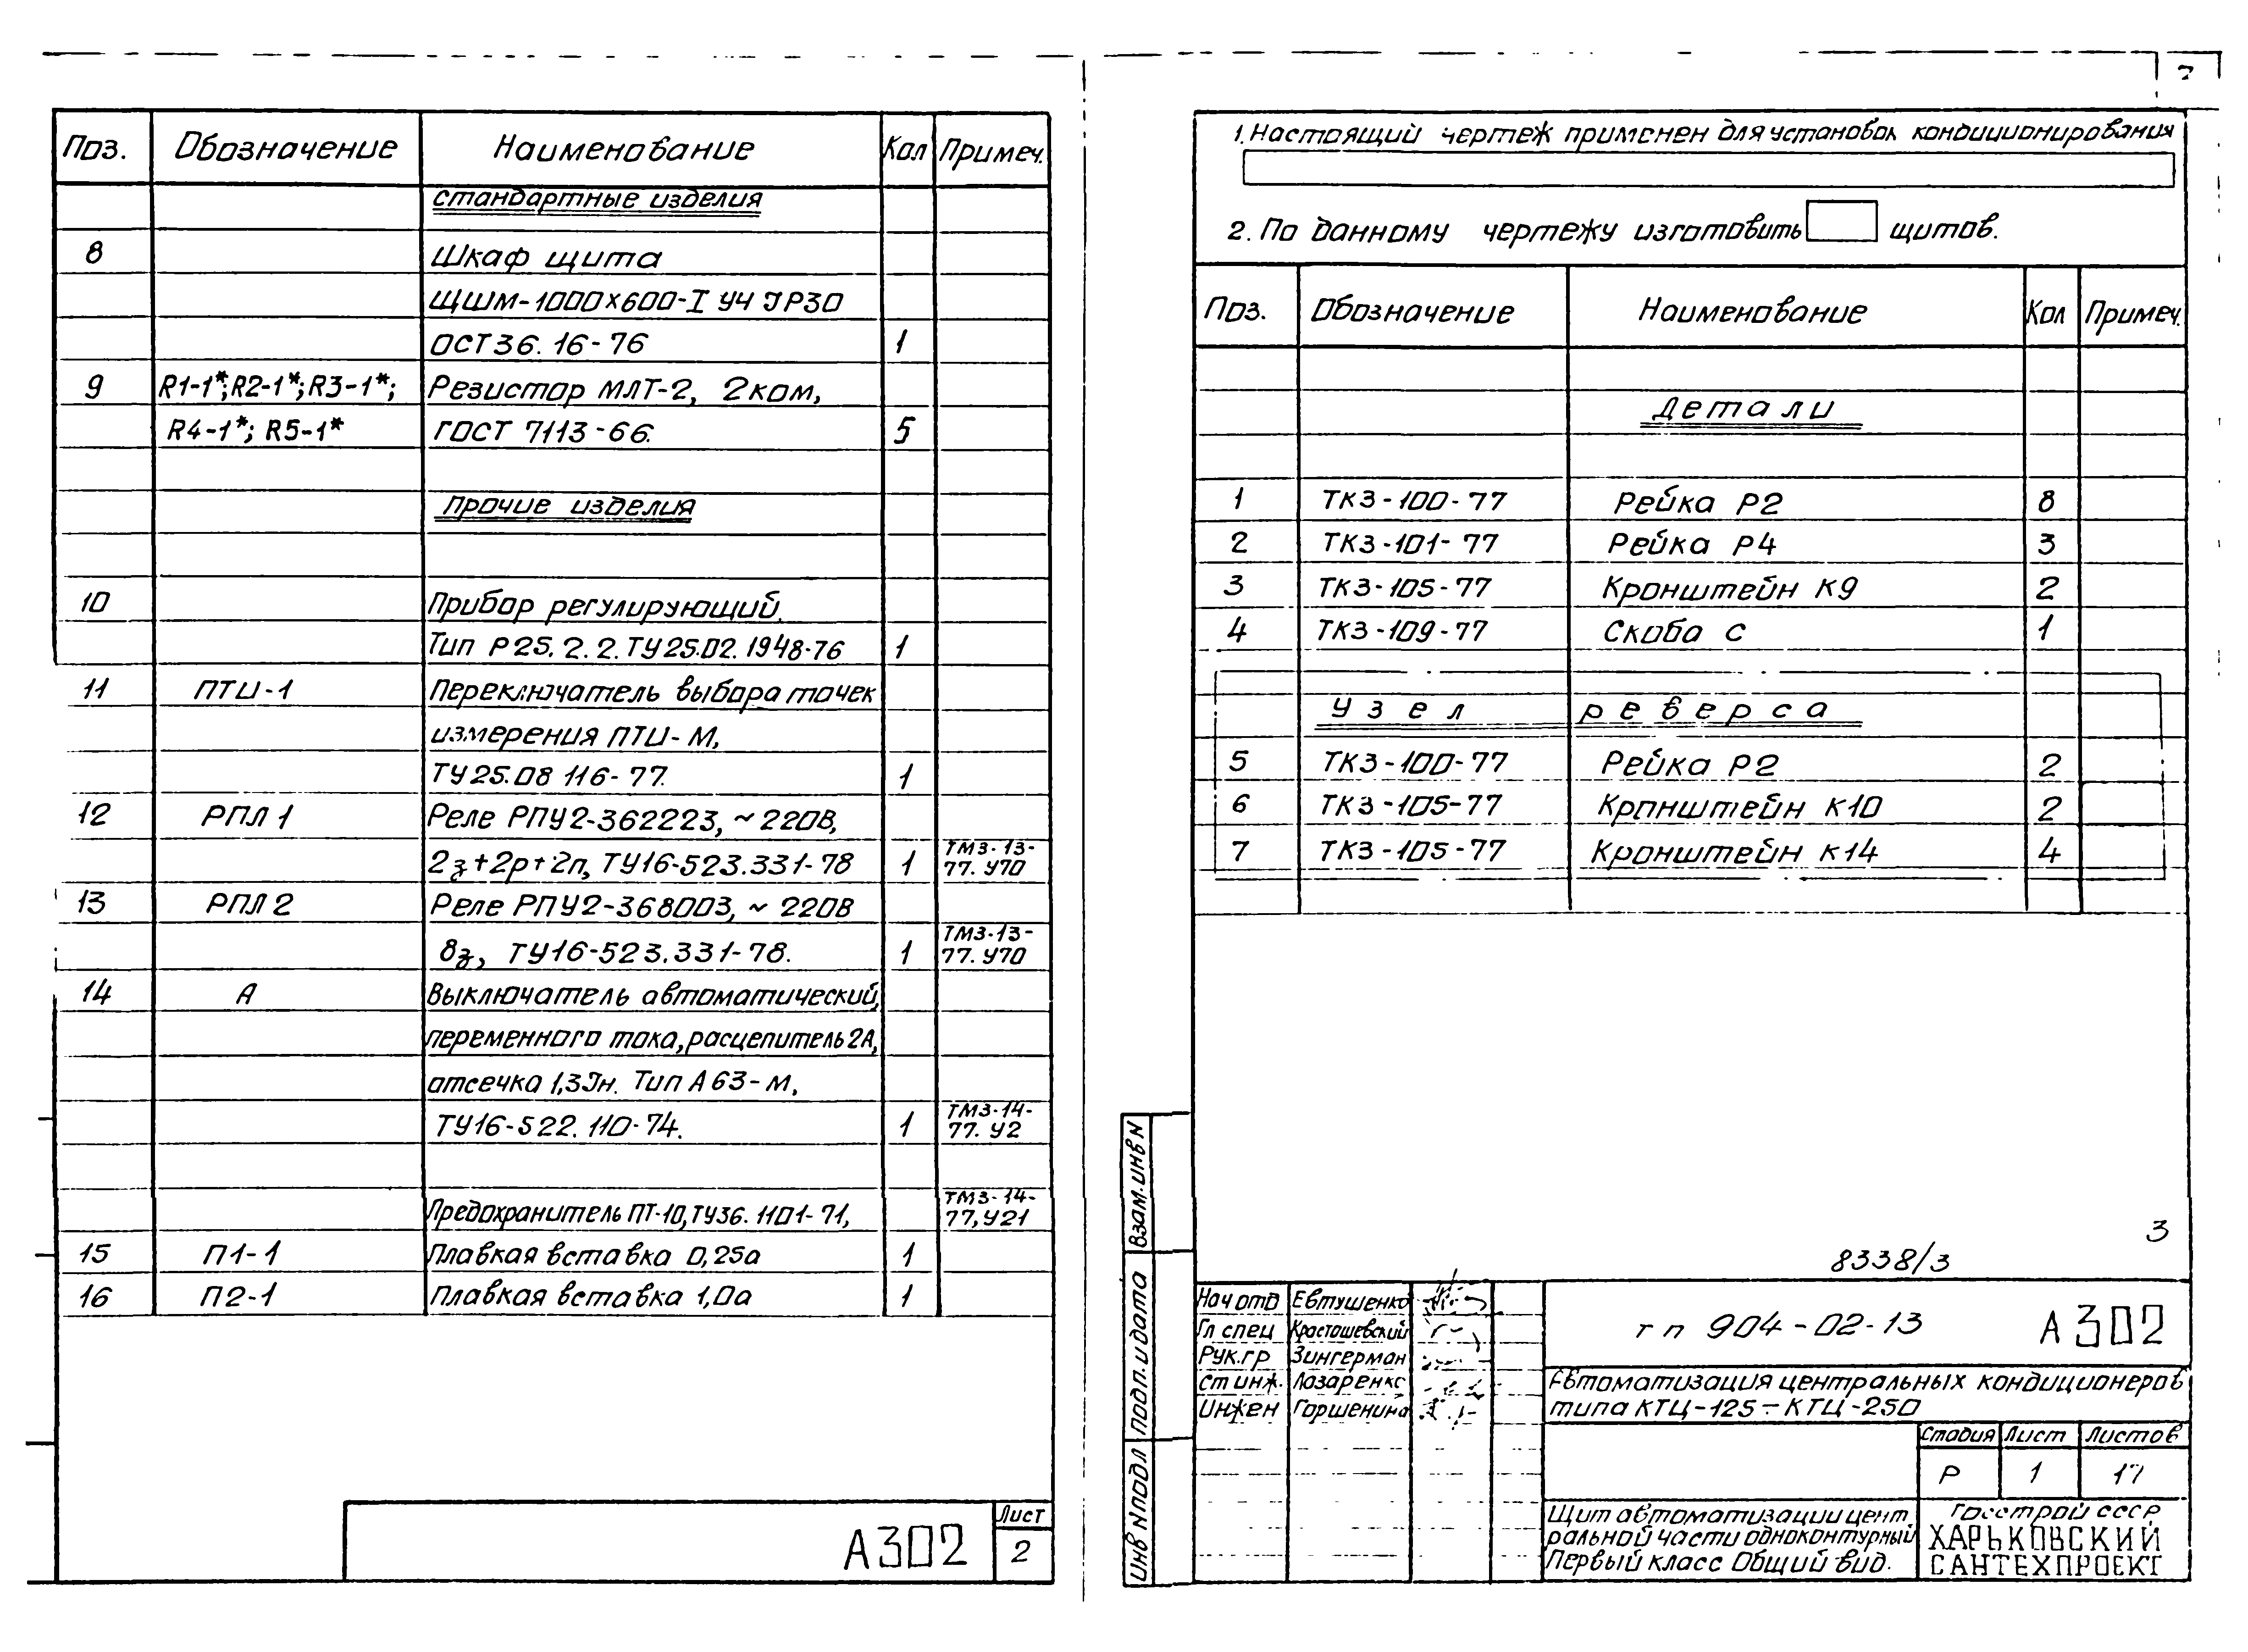 Поз. Обозначение Наименование Кол Примеч.
стандартные изделия
8 Шкаф щита
ЩШМ-1000х600-I У4 JP30
ОСТ36.16-76 1
9 R1-1*; R2-1*; R3-1*; Резистор МЛТ-2, 2ком,
R4-1*; R5-1* ГОСТ 7113-66. 5
Прочие изделия
10 Прибор регулирующий.
Тип Р25.2.2. ТУ25.02.1948-76 1
11 ПТИ-1 Переключатель выбора точек
измерения ПТИ-М,
ТУ25.08 116-77. 1
12 РПЛ1 Реле РПУ2-362223, ~220В,
2з+2р+2п, ТУ16-523.331-78 1 ТМ3-13-
77. У70
13 РПЛ2 Реле РПУ2-368003, ~220В
8з, ТУ16-523.331-78. 1 ТМ3-13-
77. У70
14 А Выключатель автоматический,
переменного тока, расцепитель 2А,
отсечка 1,3Jн. Тип А63-М,
ТУ16-522.110-74. 1 ТМ3-14-
77. У2
Предохранитель ПТ-10, ТУ36.1101-71, ТМ3-14-
77, У21
15 П1-1 Плавкая вставка 0,25а 1
16 П2-1 Плавкая вставка 1,0а 1
А302
Лист
2
1. Настоящий чертеж применен для установок кондиционирования
2. По данному чертежу изготовить щитов.
Поз. Обозначение Наименование Кол Примеч.
Детали
1 ТК3-100-77 Рейка Р2 8
2 ТК3-101-77 Рейка Р4 3
3 ТК3-105-77 Кронштейн К9 2
4 ТК3-109-77 Скоба С 1
Узел реверса
5 ТК3-100-77 Рейка Р2 2
6 ТК3-105-77 Кронштейн К10 2
7 ТК3-105-77 Кронштейн К14 4
3
8338/3
Взам. инв N
Подп. и дата
Инв N подл
Нач отд Евтушенко
Гл спец Красташевский
Рук.гр Зингерман
Ст инж. Лазаренко
Инжен Горшенина
тп 904-02-13 А302
Автоматизация центральных кондиционеров
типа КТЦ-125 – КТЦ-250
Стадия Лист Листов
Р 1 17
Щит автоматизации цент
ральной части одноконтурный
Первый класс Общий вид.
Госстрой СССР
ХАРЬКОВСКИЙ
САНТЕХПРОЕКТ